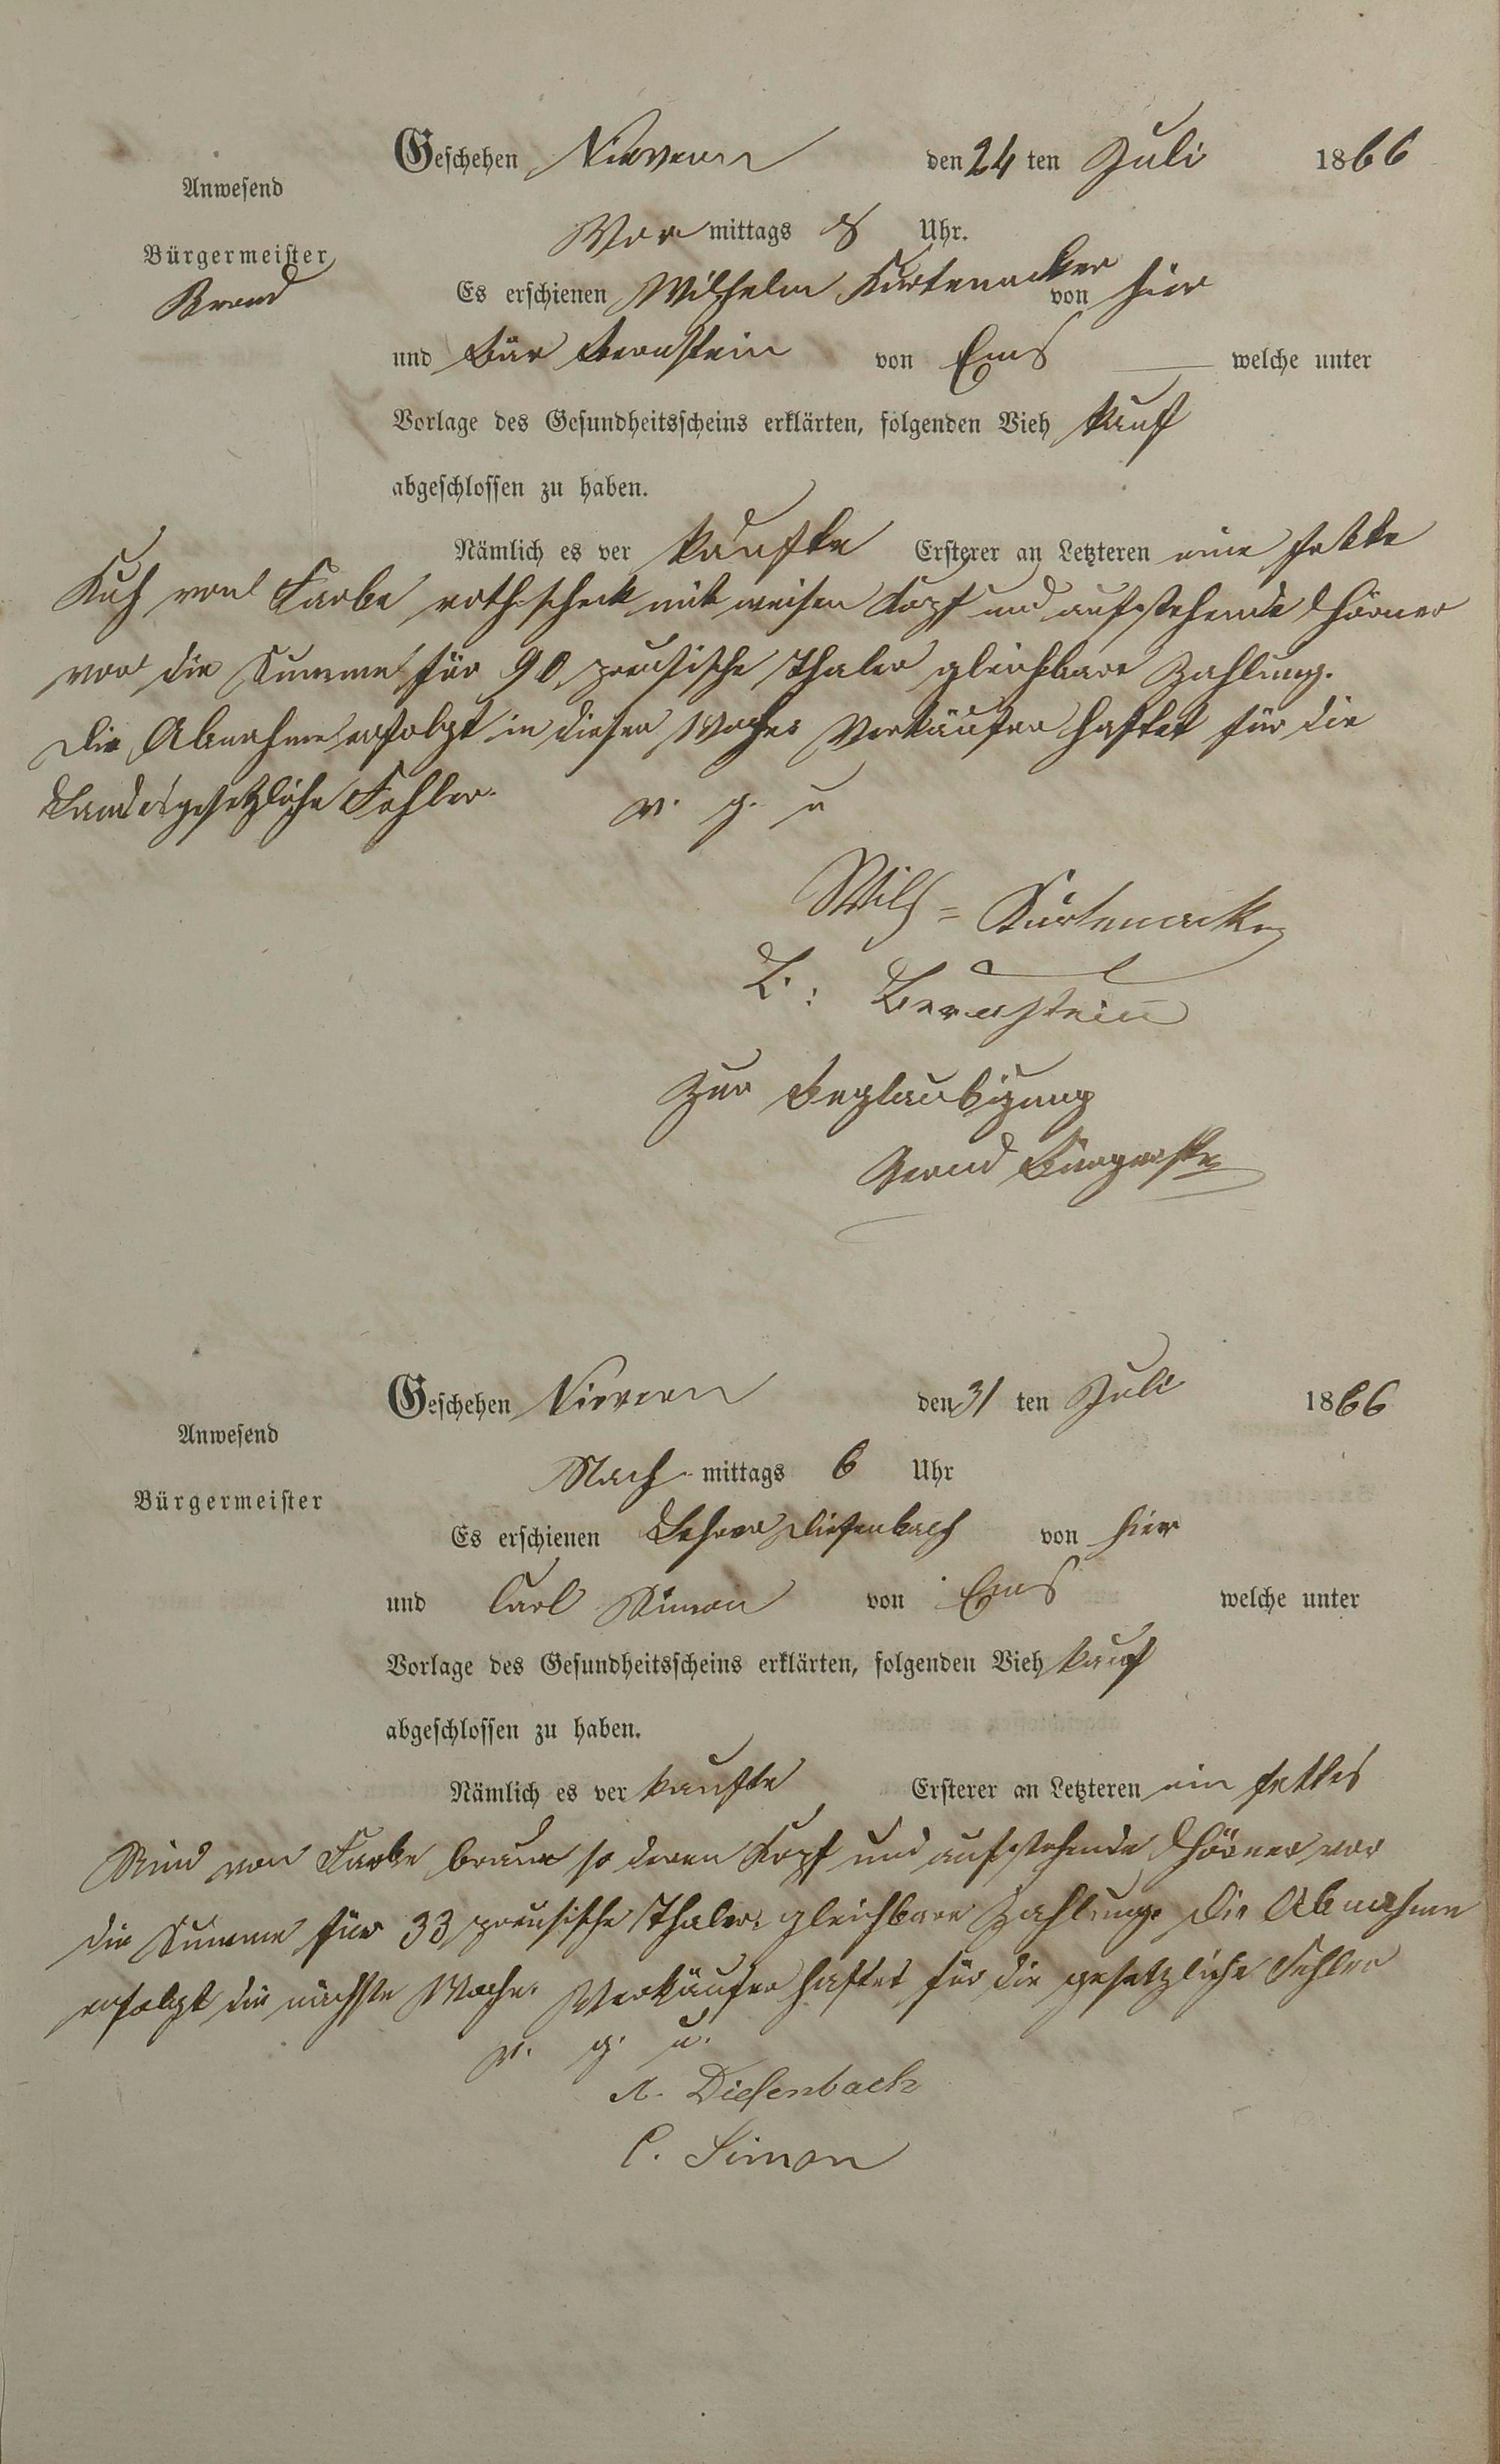 Geschehen Nievern den 24 ten Juli 1866
Anwesend
Vor mittags 8 Uhr.
Bürgermeister
Es erschienen Wilhelm Kurtenacker von hier
und Bär Bernstein von Ems welche unter
Vorlage des Gesundheitsscheins erklärten, folgenden Vieh kauf
abgeschlossen zu haben.
Nämlich es ver kaufte Ersterer an Letzteren eine fette
Kuh von Farbe rothscheck mit weisen Kopf und aufstehende Hörner
vor die Summe für 90 preusische Thaler gleichbare Zahlung.
Die Abnahme erfolgt in dieser Woche Verkäufer haftet für die
Landesgesetzliche Fehler.
v. g. u
Wilh = Kurtenacker
B: Bernstein
Zur Beglaubigung
Geschehen Nievern den 31 ten Juli 1866
Anwesend
Nach mittags 6 Uhr
Bürgermeister
Es erschienen Lehrer Diefenbach von hier
und Carl Simon von Ems welche unter
Vorlage des Gesundheitsscheins erklärten, folgenden Vieh kauf
abgeschlossen zu haben.
Nämlich es ver kaufte Ersterer an Letzteren ein fettes
Rind von Farbe braun so deren Kopf und aufstehende Hörner vor
die Summe für 33 preusische Thaler. gleichbare Zahlung. Die Abnahme
erfolgt die nächste Woche. Verkäufer haftet für die gesetzliche Fehler
v. g. u.
A. Diefenbach
C. Simon